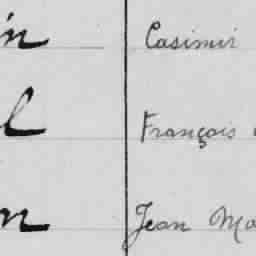 in Casimir
l François
n Jean Ma